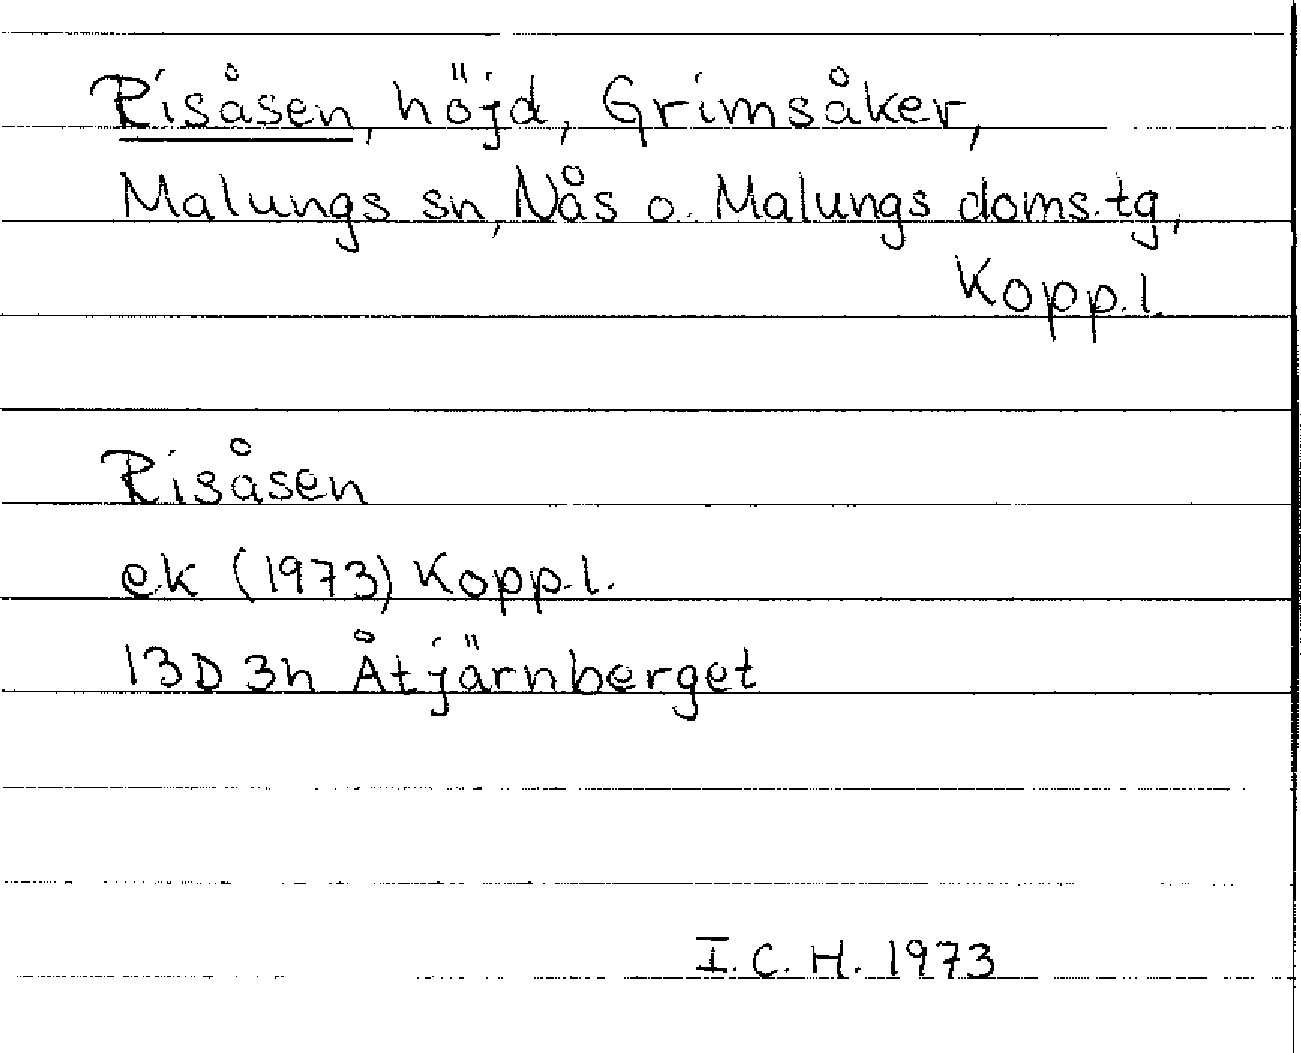 Risåsen, höjd, Grimsåker,
Malungs sn, Nås o. Malungs doms.tg,
Kopp.l.
Risåsen
ek (1973) Kopp.l.
13D 3h Åtjärnberget
I.C.H. 1973